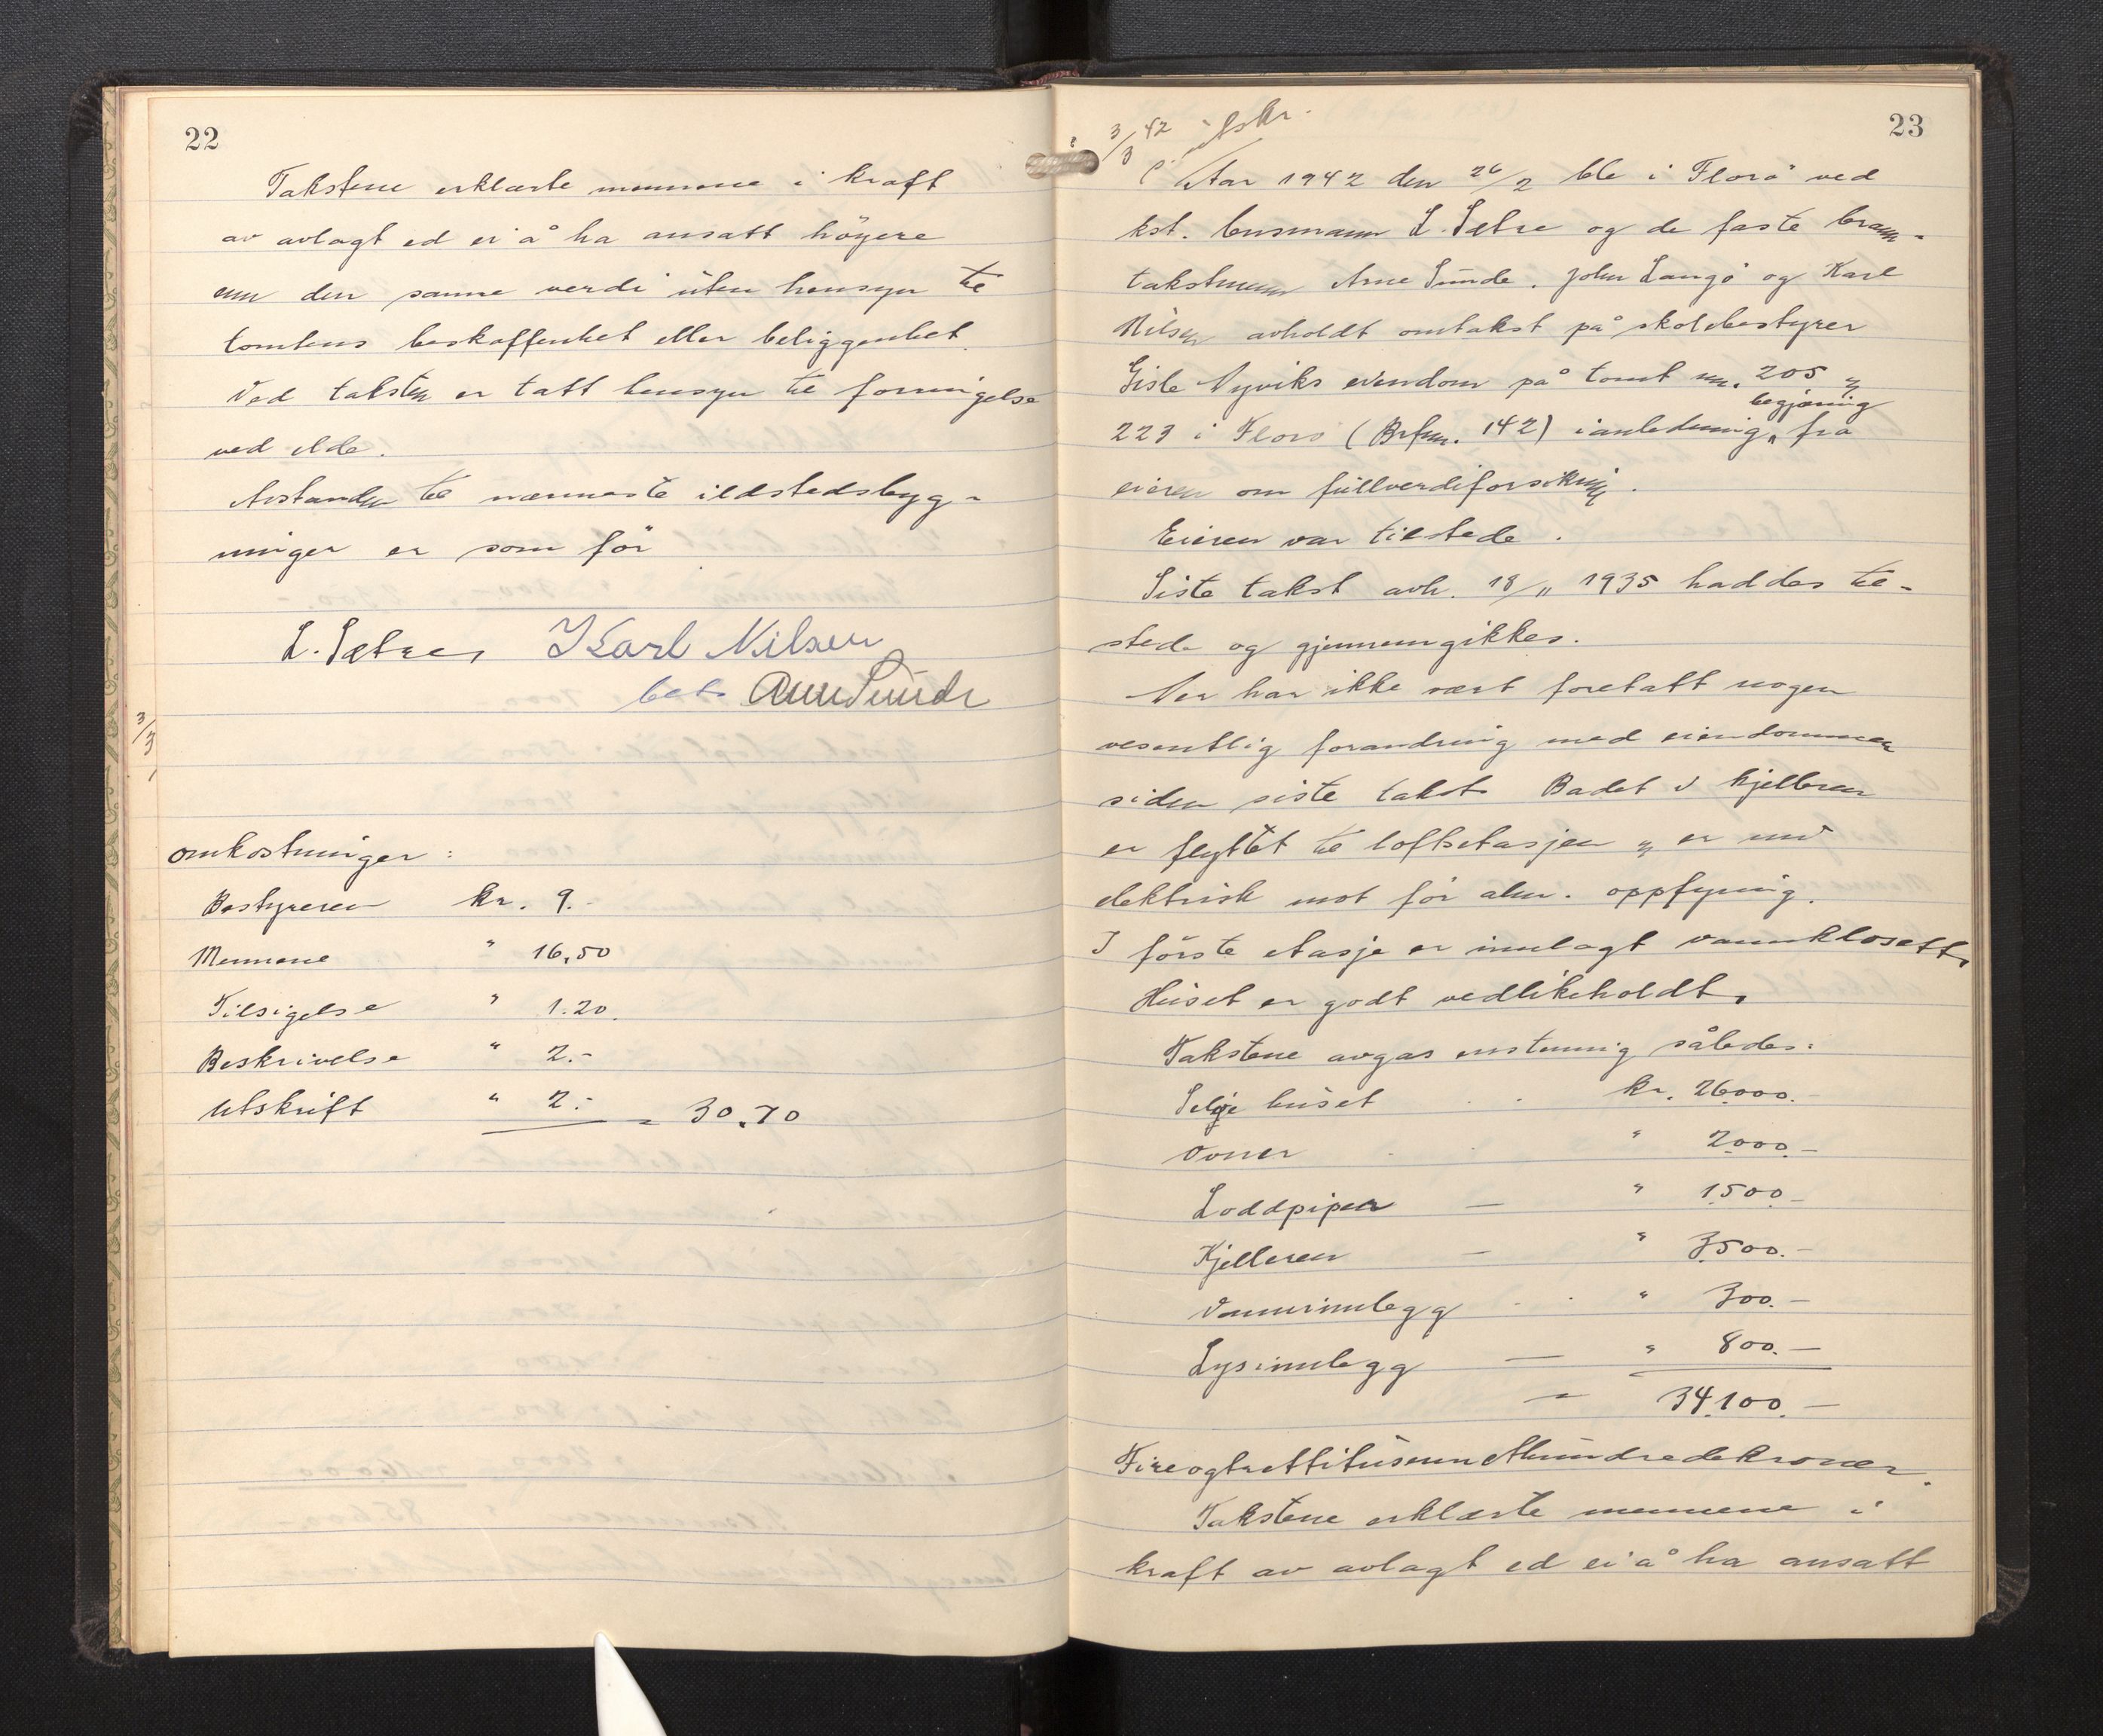 22
Takstene erklærte mennene i kraft
av avlagt ed ei å ha ansatt höyere
enn den sanne verdi uten hensyn til
tomtens beskaffenhet eller beliggenhet.
Ved taksten er tatt hensyn til forringelse
ved elde.
Avstanden til nærmeste ildstedsbyg-
ninger er som för
L. Sætre, Karl Nilsen
Arne Sunde
3/3
omkostninger:
Bestyreren kr. 9.-
Mennene " 16,50
Tilsigelse " 1.20.
Beskrivelse " 2.-
Utskrift " 2.- = 30.70
23
3/3 42 utskr.
Aar 1942 den 26/2 ble i Florö ved
kst. lensmann L. Sætre og de faste brann-
takstmenn Arne Sunde, John Langö og Karl
Nilsen avholdt omtakst på skolebestyrer
Gisle Nyviks eiendom på tomt nr. 205 og
begjæring
223 i Florö (Brfnr. 142) i anledning fra
eieren om fullverdiforsikring.
Eieren var tilstede.
Siste takst avh. 18/11 1935 haddes til-
stede og gjennemgikkes.
Der har ikke vært foretatt nogen
vesentlig forandring med eiendommen
siden siste takst. Badet i kjelleren
er flyttet til loftsetasjen og er nu
elektrisk mot för alm. oppfyring.
I förste etasje er innlagt vannklosett.
Huset er godt vedlikeholdt.
Takstene avgas enstemmig således:
Selve huset kr. 26000.-
Ovner " 2000.-
Loddpipen — " 1500.-
Kjelleren — " 3500.-
Vanninnlegg " 300.-
Lysinnlegg — " 800.-
= 34.100.-
Fireogtrettitusenetthundredekroner.
Takstene erklærte mennene i
kraft av avlagt ed ei å ha ansatt